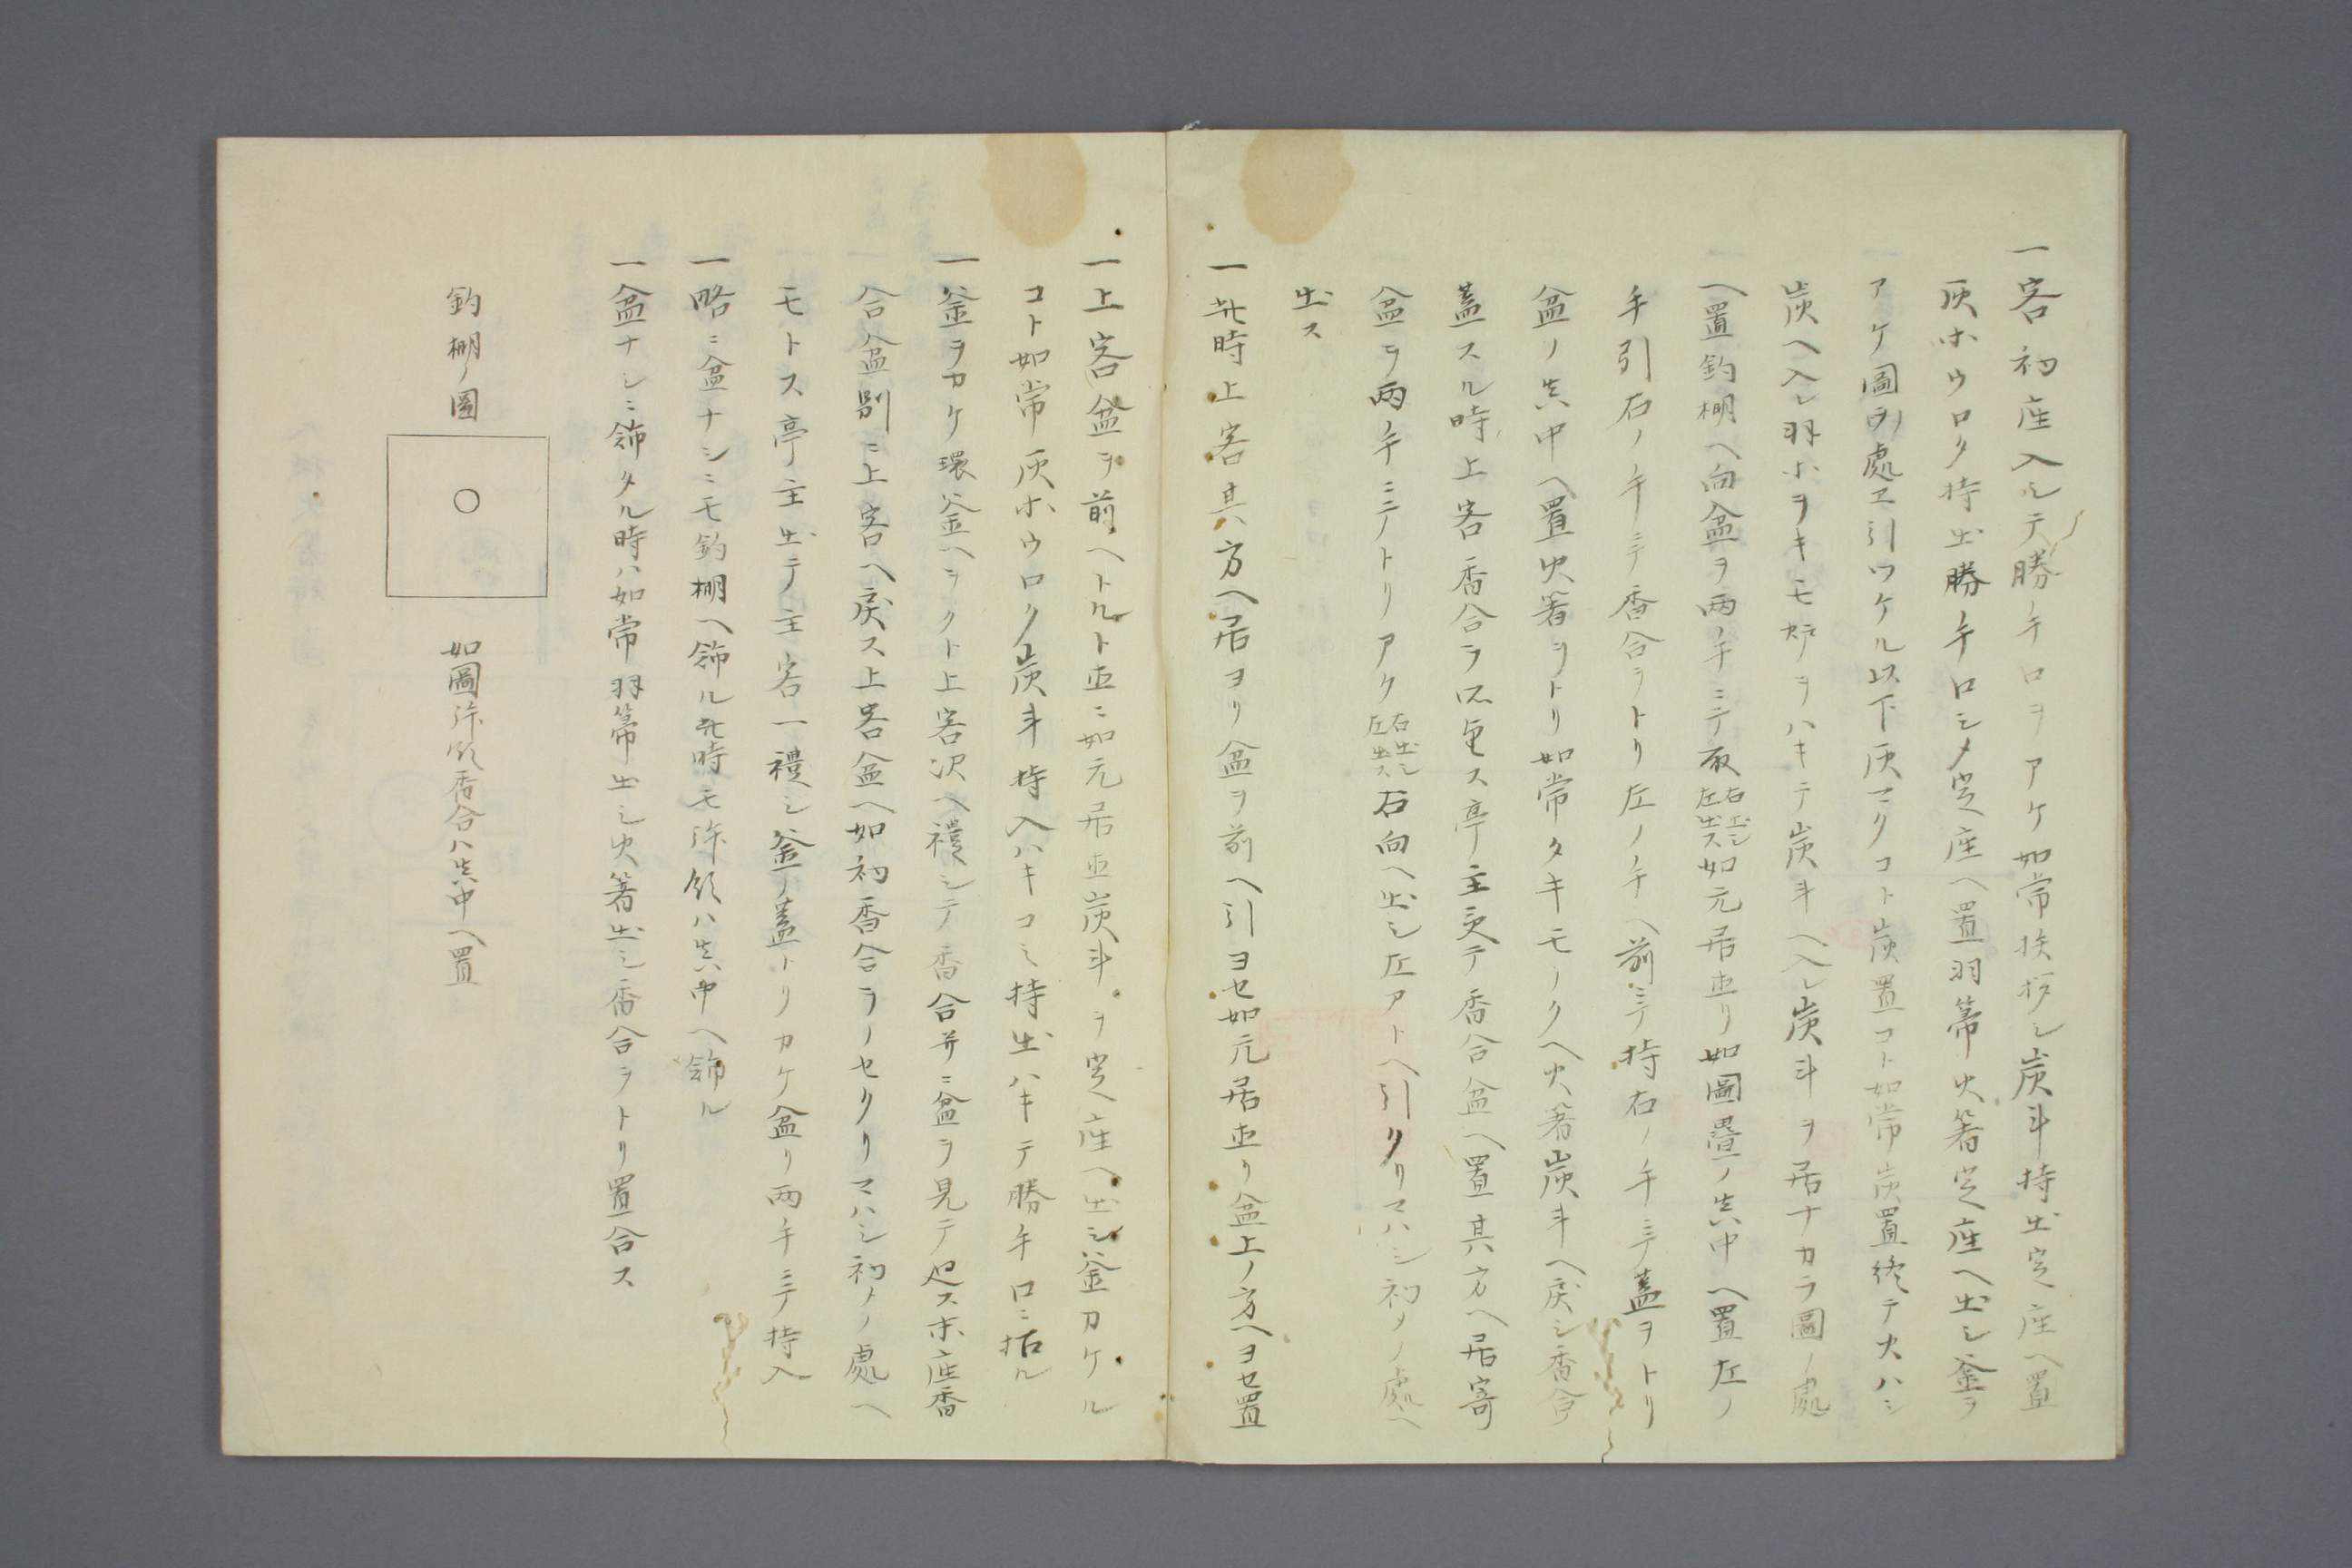 一客初座入ルテ勝手口ヲアケ如常挨拶シ炭斗持出定座ヘ置
灰ホウロク持出勝手口シメ定座ヘ置羽箒火箸定座ヘ出シ釜ヲ
アケ圖ノ處エ引ツケル以下灰マクコト炭置コト如常炭置終テ火ハシ
炭ヘ入レ羽ホヲキモ炉ヲハキテ炭斗ヘ入レ炭斗ヲ居ナカラ圖ノ處
ヘ置釣棚ヘ向盆ヲ両手ニテ取右出シ左出ス如元居直リ如圖疊ノ真中ヘ置左ノ
手引右ノ手ニテ香合ヲトリ左ノ手ヘ前ニテ持右ノ手ニテ蓋ヲトリ
盆ノ真中ヘ置火箸ヲトリ如常タキモノクヘ火箸炭斗ヘ戻シ香合
蓋スル時上客香合ヲ所望ス亭主受テ香合盆ヘ置其方ヘ居寄
盆ヲ両手ニテトリアケ右出シ左出ス右向ヘ出シ左アトヘ引クリマハシ初メノ處ヘ
出ス
一此時上客其方ヘ居ヨリ盆ヲ前ヘ引ヨセ如元居直リ盆上ノ方ヘヨセ置
一上客盆ヲ前ヘトルト直ニ如元居直炭斗ヲ定座ヘ出シ釜カケル
コト如常灰ホウロク炭斗持入ハキコミ持出ハキテ勝手口ニ括ル
一釜ヲカケ環釜ヘヲクト上客次ヘ禮シテ香合并ニ盆ヲ見テ返ス末座香
合盆別ニ上客ヘ戻ス上客盆ヘ如初香合ヲノセクリマハシ初メノ處ヘ
モトス亭主出テ主客一禮シ釜ノ蓋トリカケ盆リ両手ニテ持入
一略ニ盆ナシニモ釣棚ヘ飾ル此時モ飾リハ真中ヘ飾ル
一盆ナシニ飾タル時ハ如常羽箒出シ火箸出シ香合ヲトリ置合ス
釣棚ノ圖
如圖 香合ハ真中ヘ置